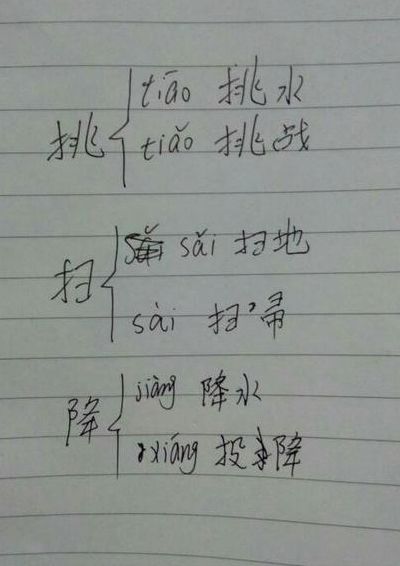 挑 tiāo 挑水
tiǎo 挑战
扫 sǎi 扫地
sài 扫帚
降 jiàng 降水
xiáng 投降